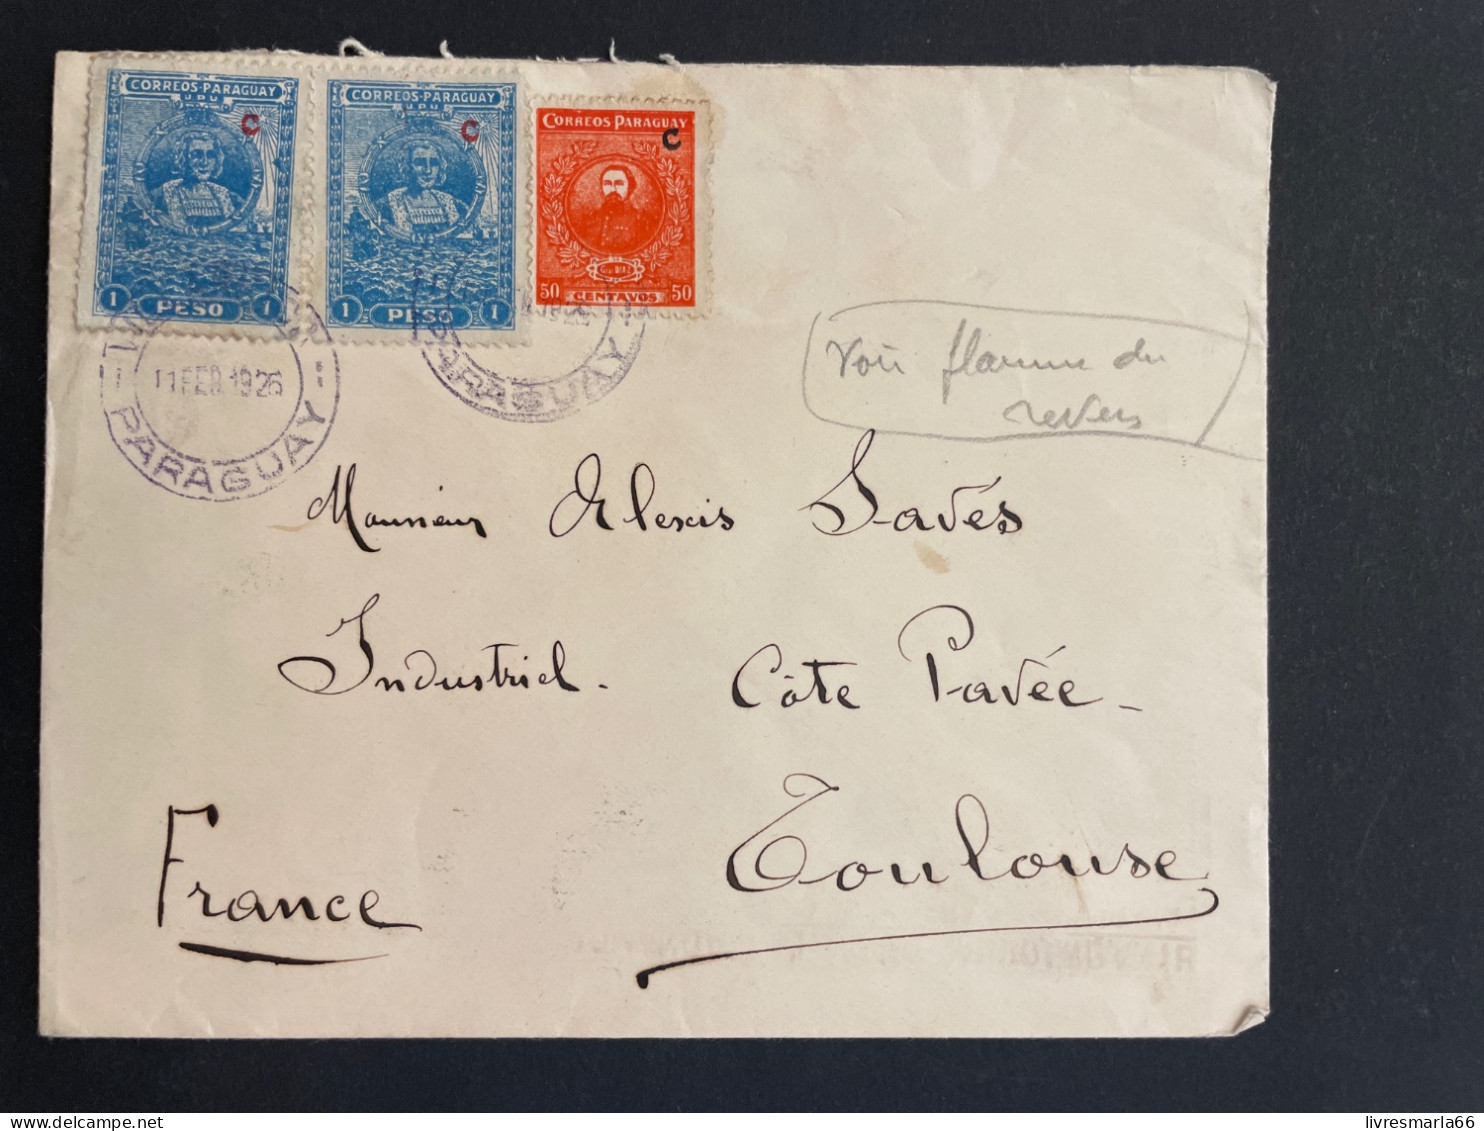 CORREOS·PARAGUAY
U.P.U.
C
1 PESO 1
CORREOS·PARAGUAY
U.P.U.
C
1 PESO 1
CORREOS PARAGUAY
C
50 CENTAVOS 50
11 FEB 1926
PARAGUAY
PARAGUAY
Voir flamme du
revers
Monsieur Alexis Savés
Industriel. Côte Pavée_
Toulouse
France
livresmarla66